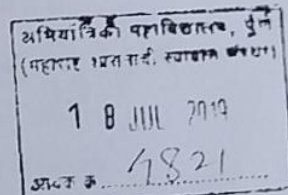 अभियांत्रिकी महाविद्यालय, पुणे
(महाराष्ट्र स्वायत्त संस्था)
1 8 JUL 2019
आवक क्र. 4821